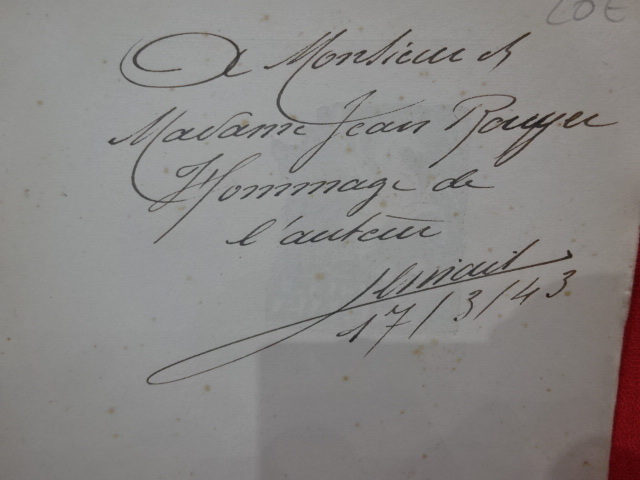 20€
A Monsieur et
Madame Jean Rouyer
Hommage de
l'auteur
17/3/43